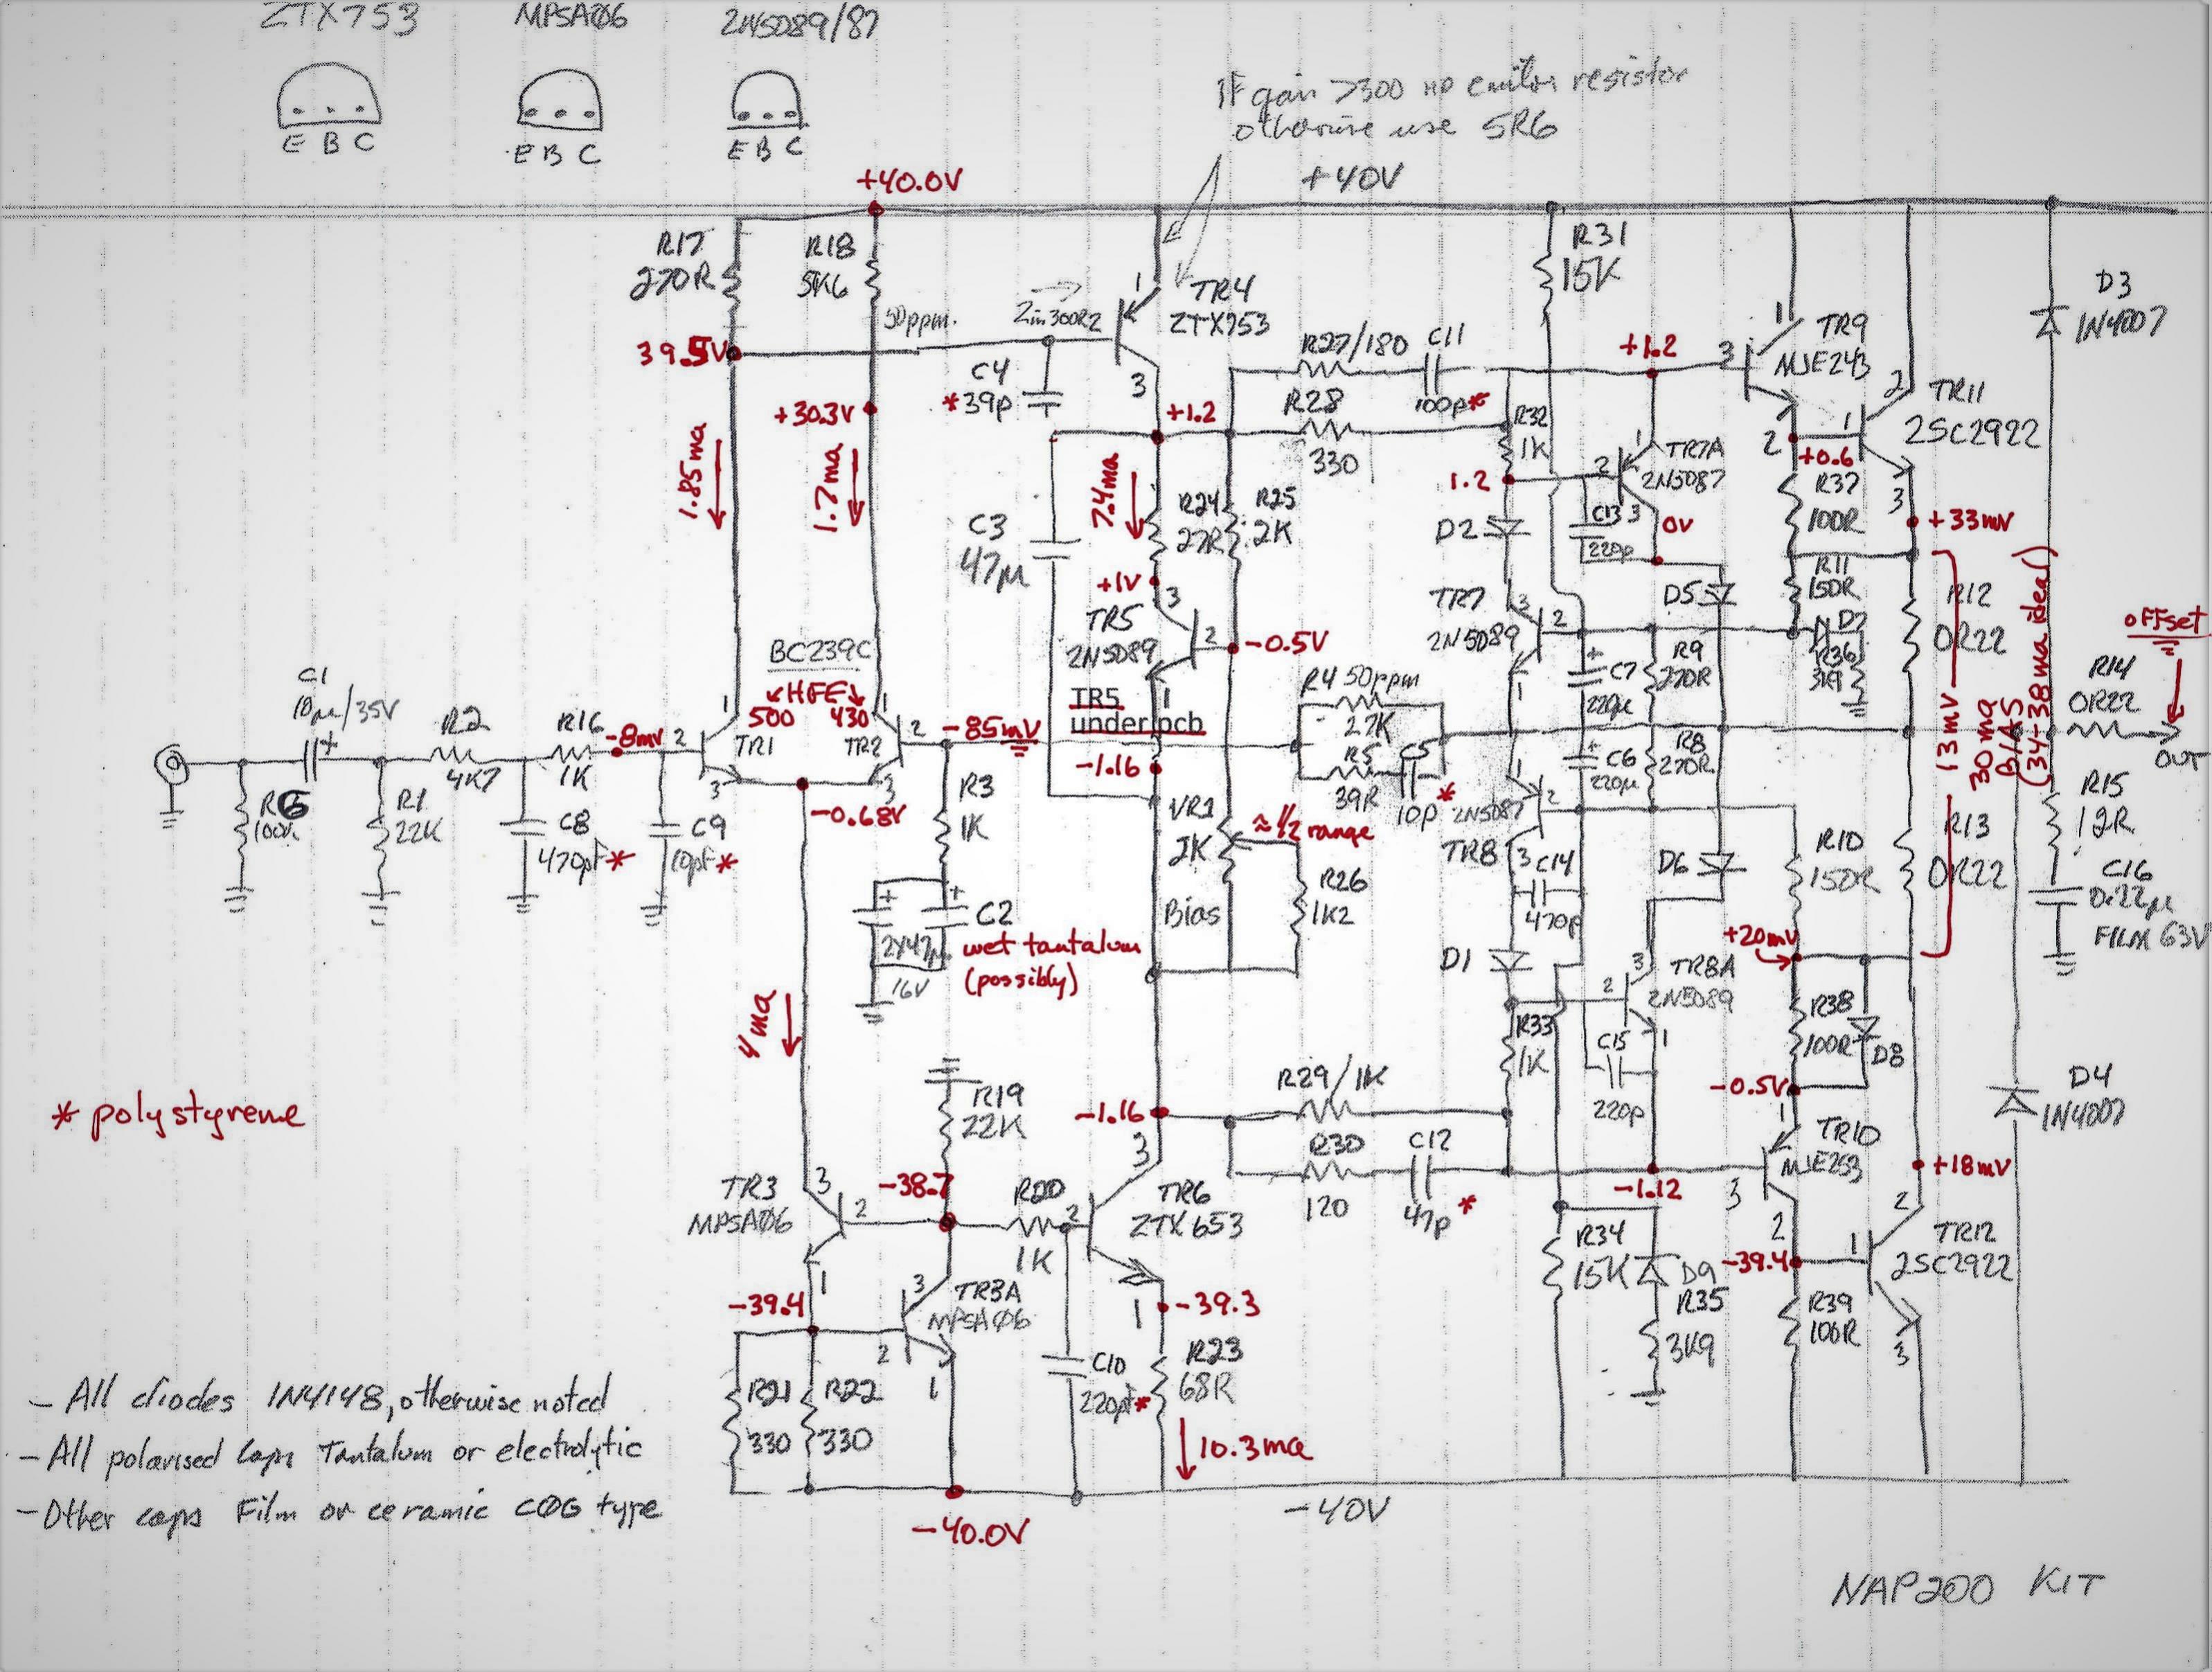 ZTX753
MPSAØ6
2N5089/87
E B C
E B C
E B C
IF gain >300 no emitor resistor
otherwise use 5R6
+40.0V
+40V
R17
270R
R18
5K6
50ppm.
Zin 300R
2
1
TR4
ZTX753
3
R31
15K
D3
1N4007
39.5V
C4
*39p
+30.3V
1.85ma
1.7ma
+1.2
R27/180
C11
100p*
R28
330
+1.2
3
1
TR9
MJE243
2
TR11
2SC2922
1
2
+0.6
3
R32
1K
1.2
1
2
TR7A
2N5087
3
0V
R37
100R
+33mV
C3
47µ
7.4ma
R24
27R
R25
2K
D2
C13
220p
+1V
TR5
2N5089
3
2
1
-0.5V
TR7
2N5089
3
2
1
D5
R11
150R
D7
R36
3K9
R12
0R22
R9
270R
C7
220µ
+
13mV
30ma
BIAS
(34-38ma ideal)
offset
R14
0R22
OUT
BC239C
HFE
500
430
C1
10µ/35V
+
R2
4K7
R16
1K
-8mV
2
1
TR1
3
TR2
1
2
3
-85mV
TR5
under pcb
-1.16
R4 50ppm
27K
R5
39R
C5
10p
*
C6
220µ
+
R8
270R
R6
100K
R1
22K
C8
470pF*
C9
10pF*
-0.68V
R3
1K
VR1
2K
≈ 1/2 range
1
2
2N5087
TR8
3
C14
470p
D6
R10
150R
R13
0R22
R15
12R
C16
0.22µ
FILM 63V
+
+
C2
2X47µ
16V
wet tantalum
(possibly)
Bias
R26
1K2
D1
+20mV
3
TR8A
2N5089
2
1
R38
100R
D8
4ma
R33
1K
C15
220p
R19
22K
-1.16
R29/1K
-0.5V
D4
1N4007
* polystyrene
R30
120
C12
47p
*
-1.12
1
TR10
MJE253
3
2
+18mV
TR3
MPSAØ6
3
2
1
-38.7
R20
1K
3
2
TR6
ZTX653
1
R34
15K
D9
R35
3K9
-39.4
1
2
TR12
2SC2922
3
R39
100R
-39.4
3
TR3A
MPSAØ6
2
1
-39.3
R21
330
R22
330
C10
220pF*
R23
68R
10.3ma
- All diodes 1N4148, otherwise noted
- All polarised Caps Tantalum or electrolytic
- Other caps Film or ceramic CØG type
-40.0V
-40V
NAP200 KIT